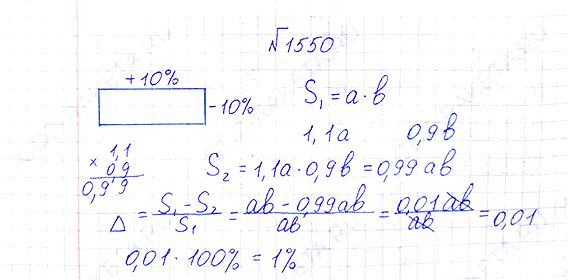 №1550
+10%
-10%
S₁ = a · b
1,1a 0,9b
× 1,1
0,9
0,99
S₂ = 1,1a · 0,9b = 0,99ab
Δ = (S₁ - S₂)/S₁ = (ab - 0,99ab)/ab = 0,01ab/ab = 0,01
0,01 · 100% = 1%